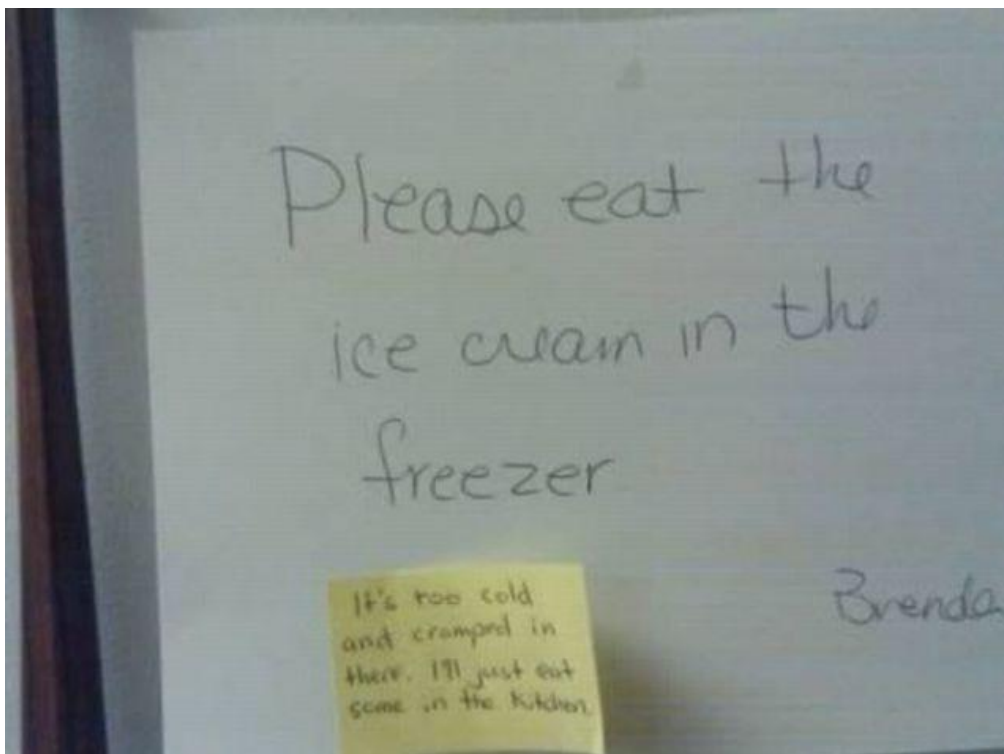 Please eat the
ice cream in the
freezer
Brenda
It's too cold
and cramped in
there. I'll just eat
some in the kitchen.